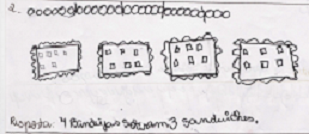 2.
Resposta: 4 Bandejas sobram 3 sanduíches.